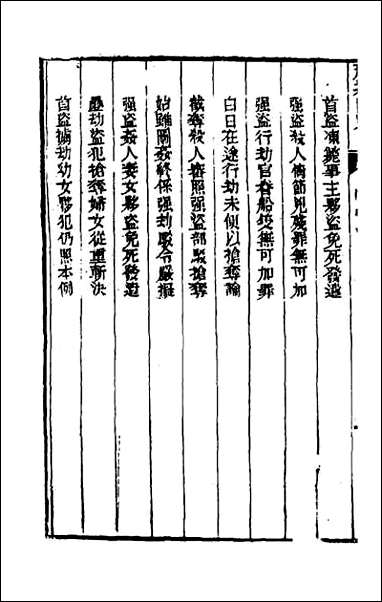 首盜凍斃事主夥盜免死發遣
強盜殺人情節兇殘罪無可加
強盜行劫官眷船隻無可加罪
白日在途行劫未便以搶奪論
截奪殺人審照強盜部駁搶奪
始雖圖姦終係强劫駁令嚴擬
强盜姦人妻女夥盜免死發遣
疊劫盜犯搶奪婦女從重斬決
首盜擄劫幼女夥犯仍照本例